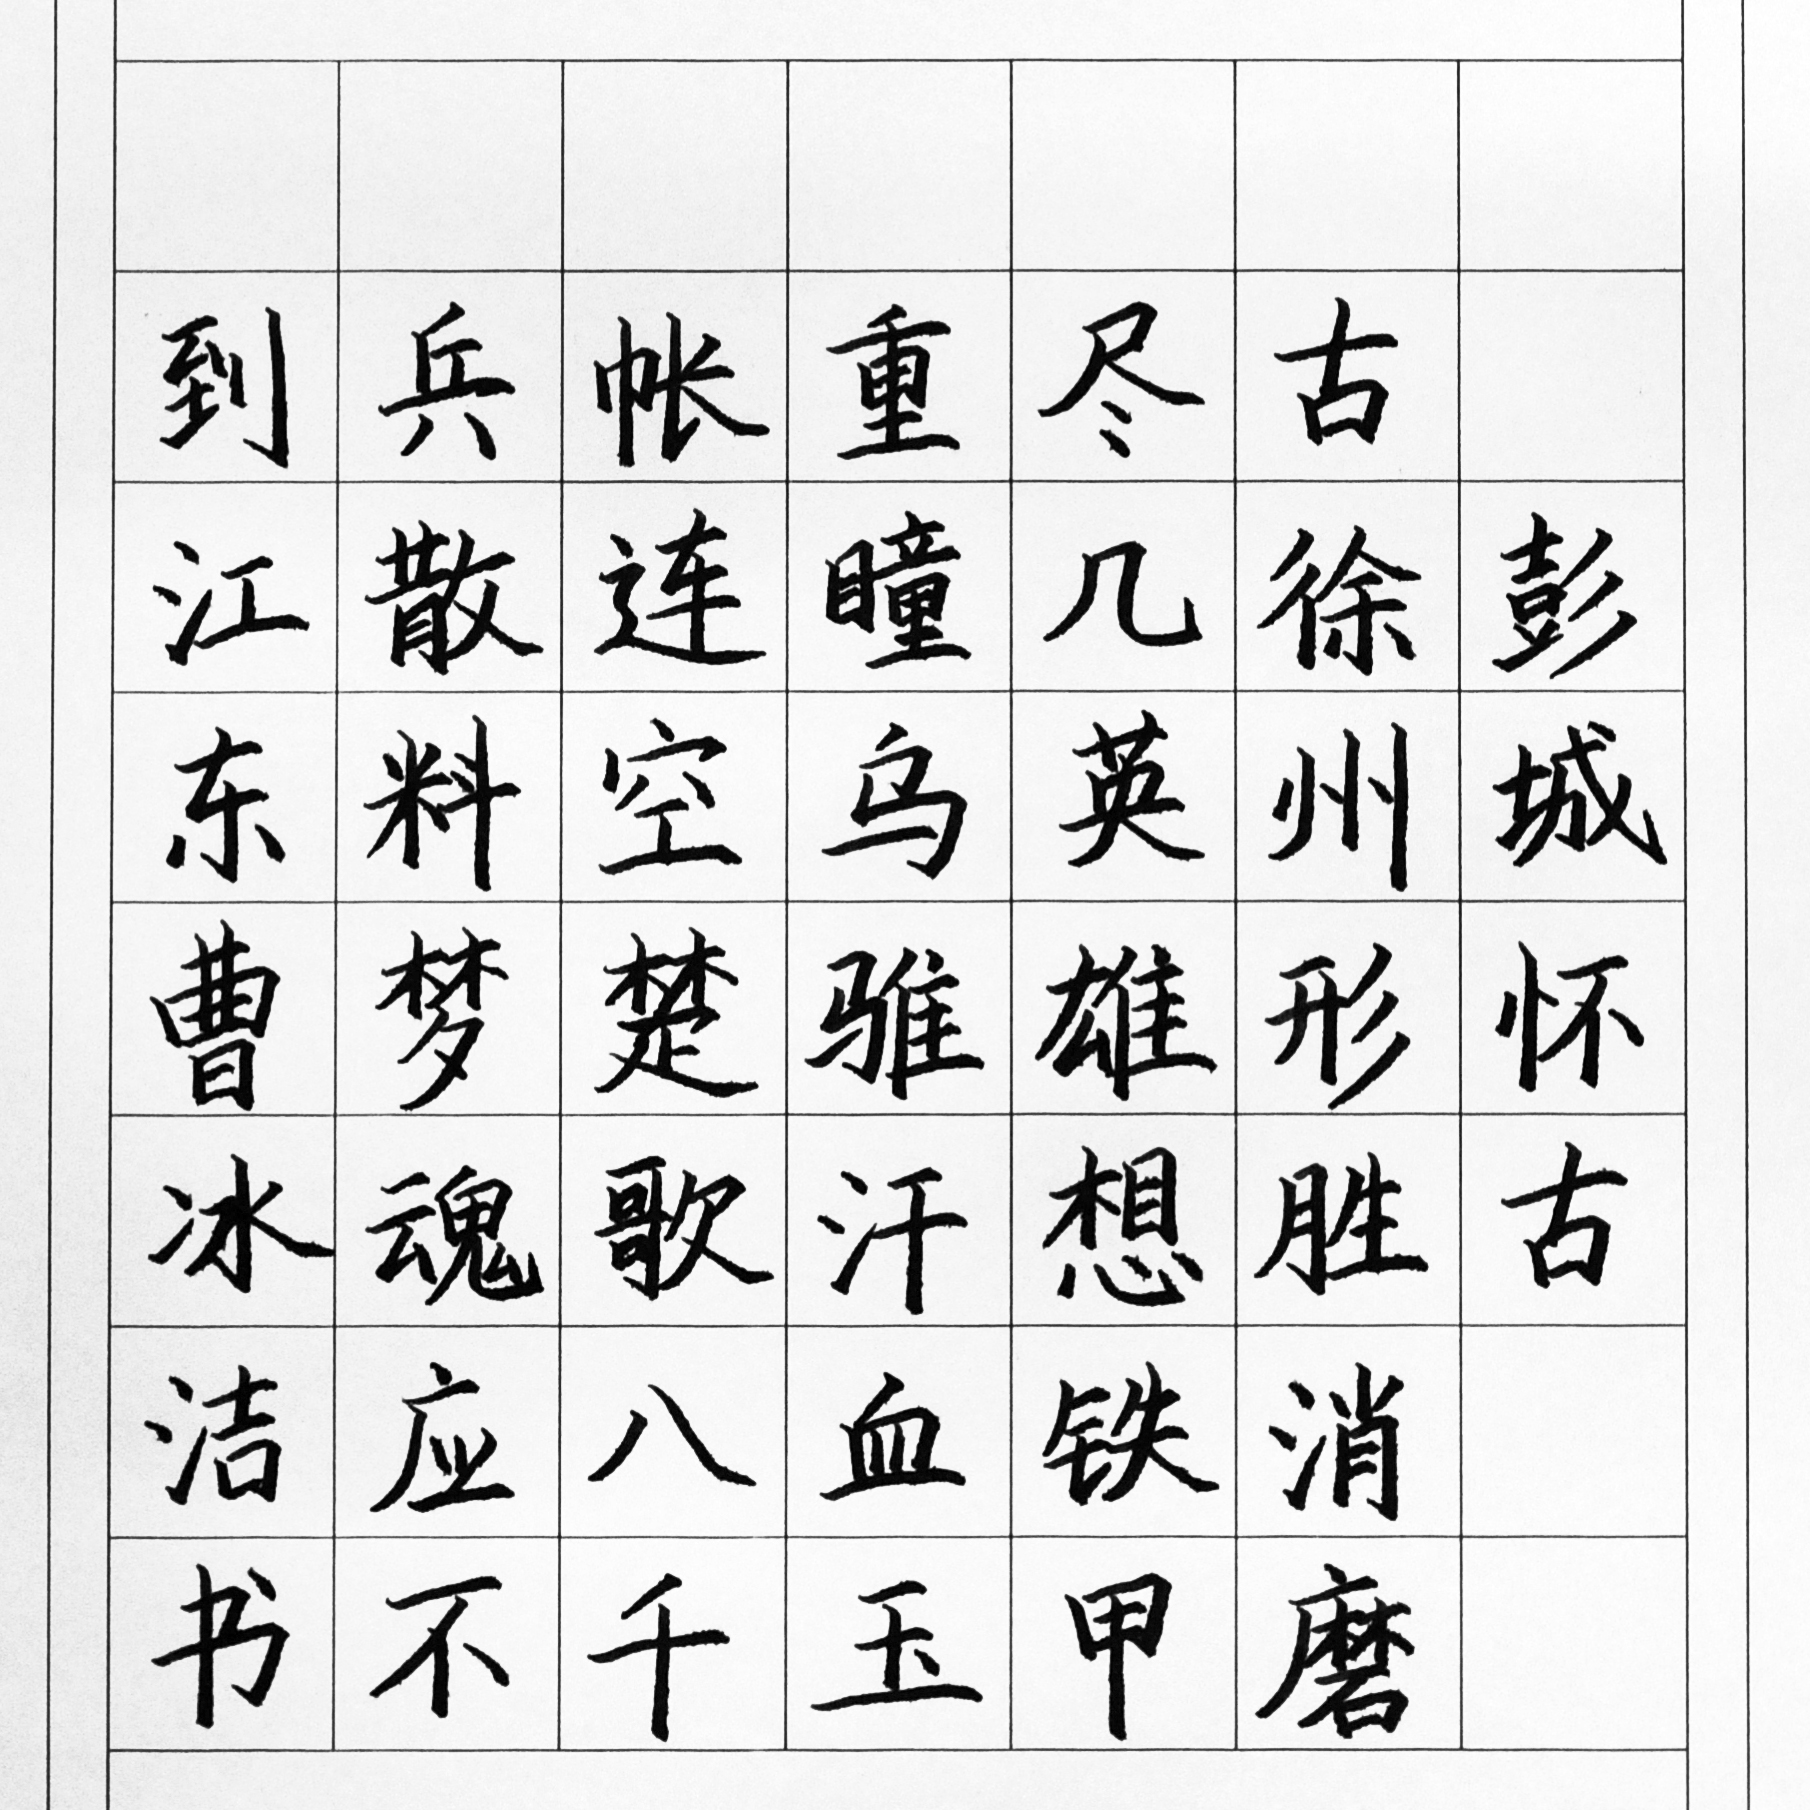 彭城怀古
古徐州形胜消磨
尽几英雄想铁甲
重瞳乌骓汗血玉
帐连空楚歌八千
兵散料梦魂应不
到江东曹冰洁书